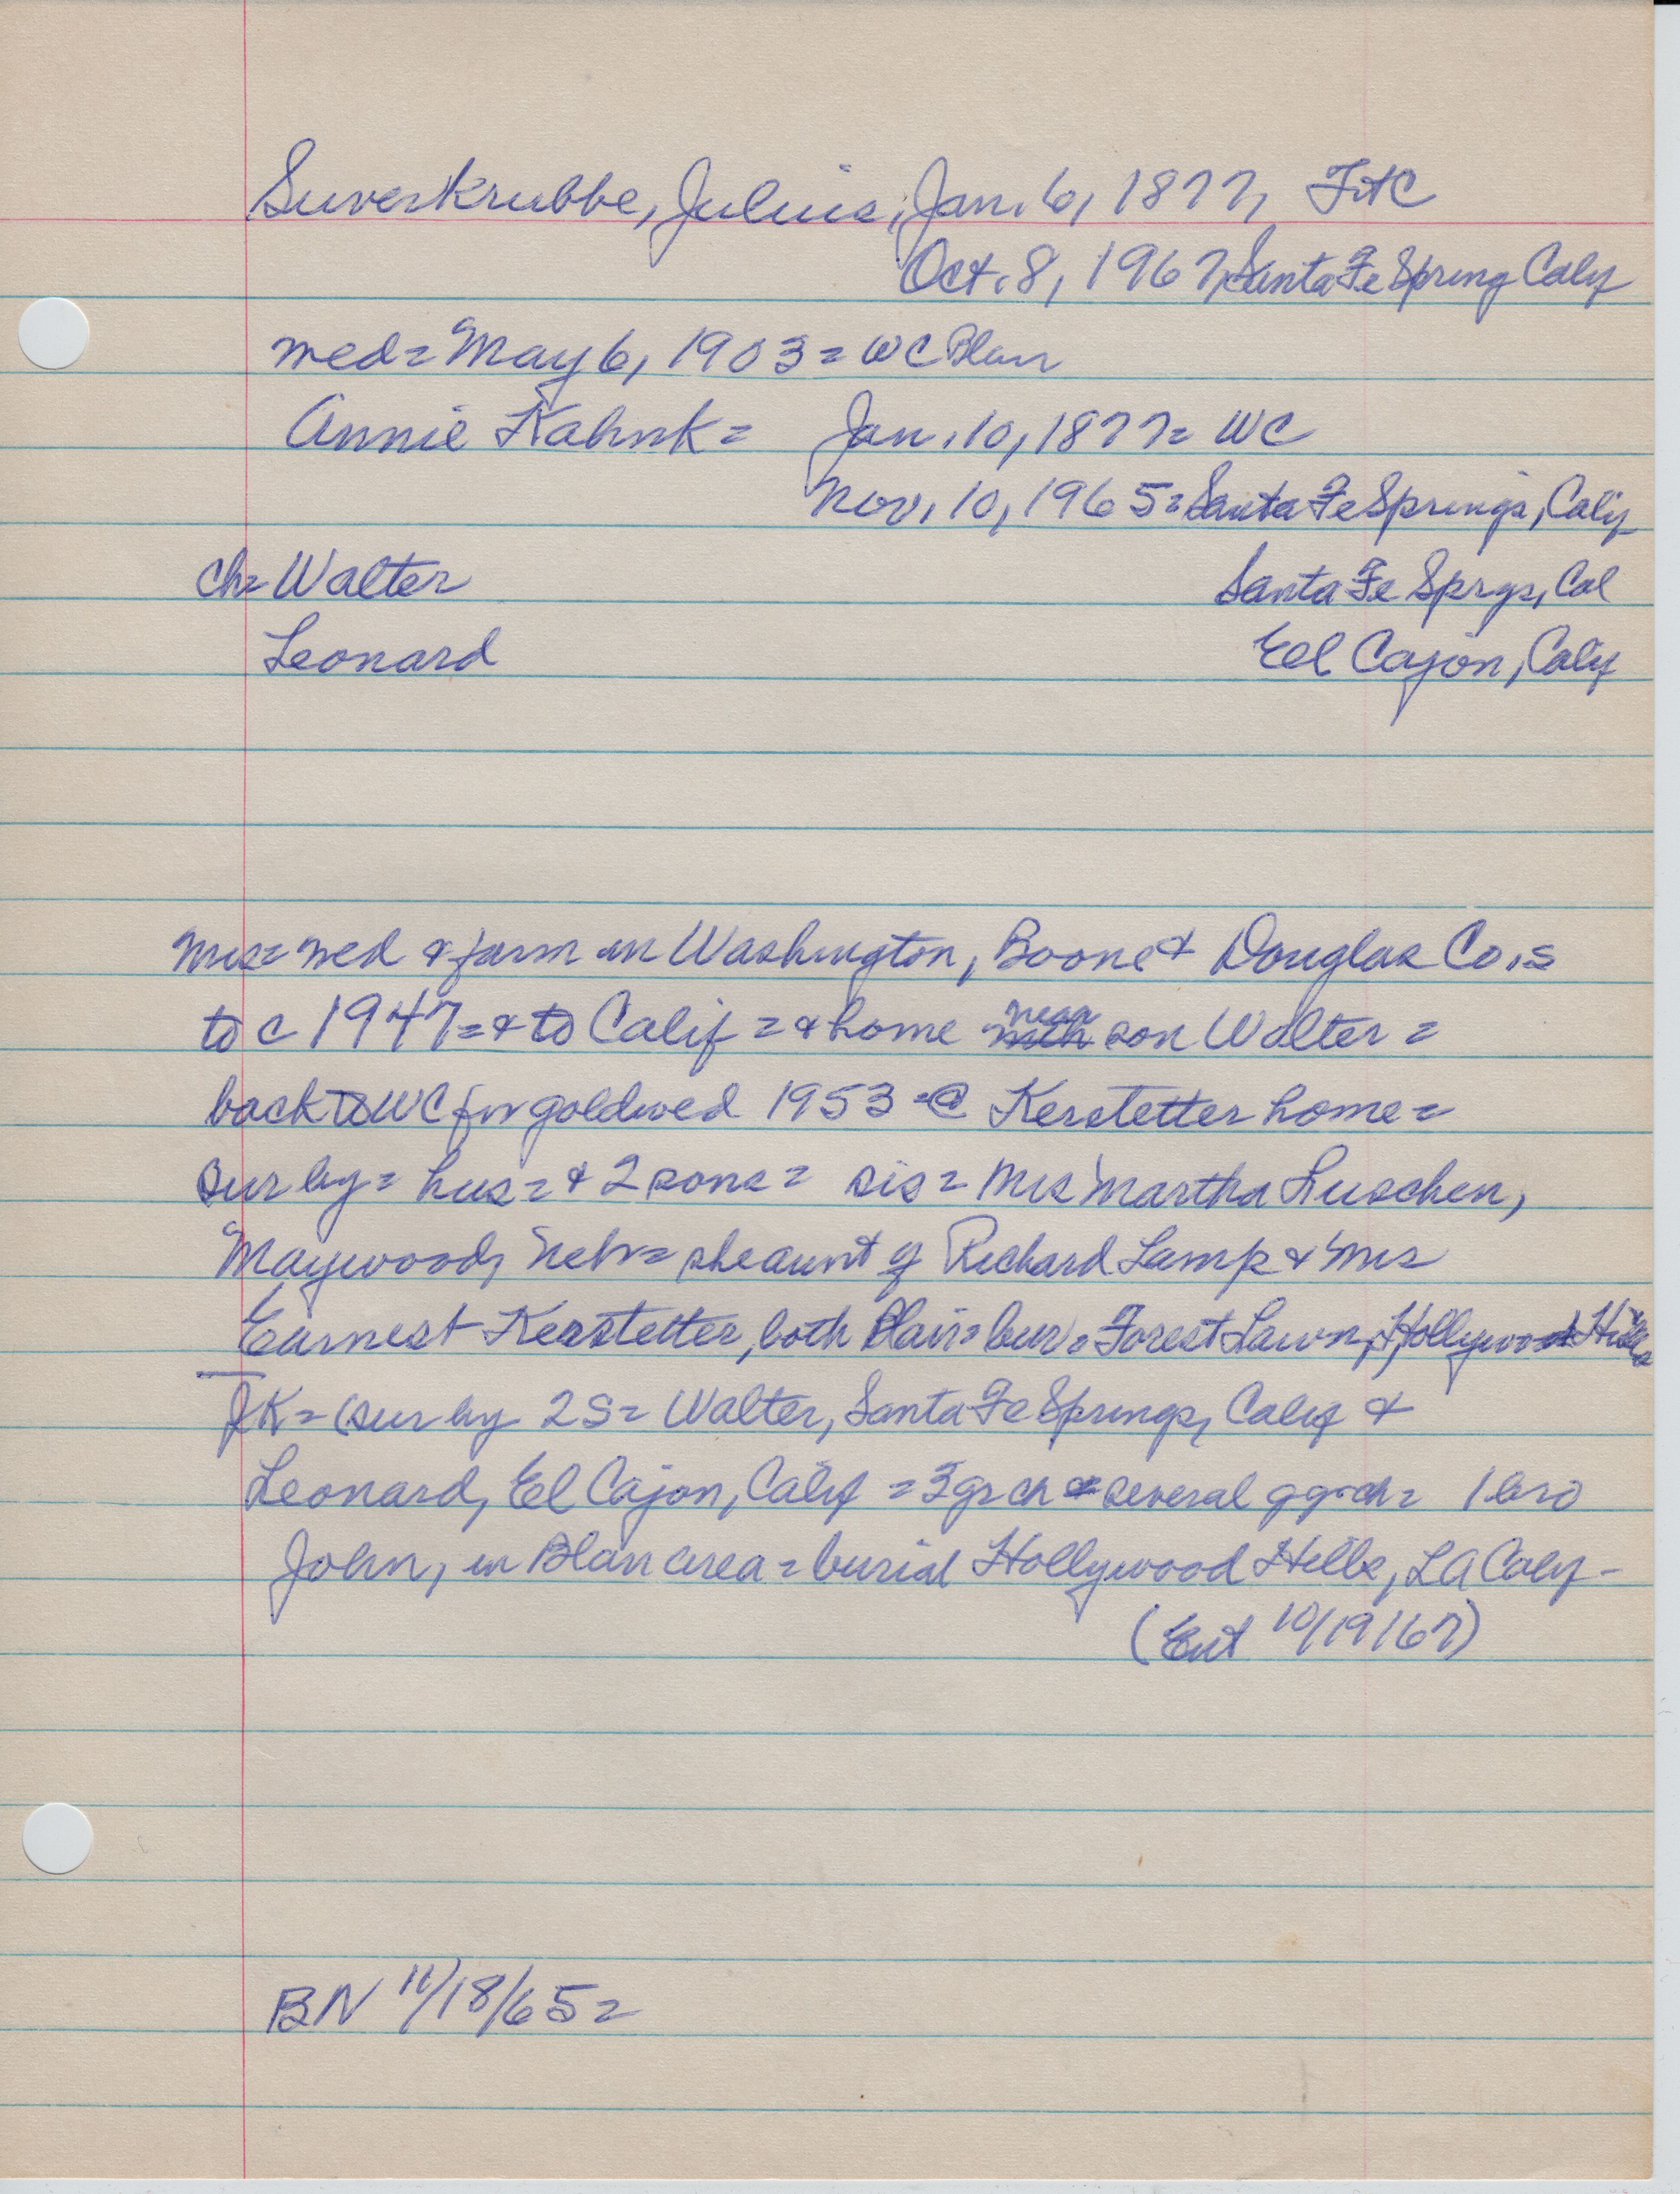 Suverkrubbe, Julius, Jan. 6, 1877, FtC
Oct. 8, 1967, Santa Fe Spring Calif
wed = May 6, 1903 = WC Blair
Annie Kahnk = Jan. 10, 1877 = WC
Nov. 10, 1965 = Santa Fe Springs, Calif
ch = Walter Santa Fe Sprgs, Cal
Leonard El Cajon, Calif
Mrs = wed & farm in Washington, Boone & Douglas Co.s
to c 1947 = & to Calif = & home near son Walter =
back to WC for goldwed 1953 @ Kerstetter home =
sur by = hus = & 2 sons = sis = Mrs Martha Luschen,
Maywood, Nebr = she aunt of Richard Lamp & Mrs
Earnest Kerstetter, both Blair = bur = Forest Lawn, Hollywood Hills
JK = (sur by 2S = Walter, Santa Fe Springs, Calif &
Leonard, El Cajon, Calif = 3 gr ch = several ggrch = 1 bro
John, in Blair area = burial Hollywood Hills, LA Calif -
(Ent 10/19/67)
BN 11/18/65 =